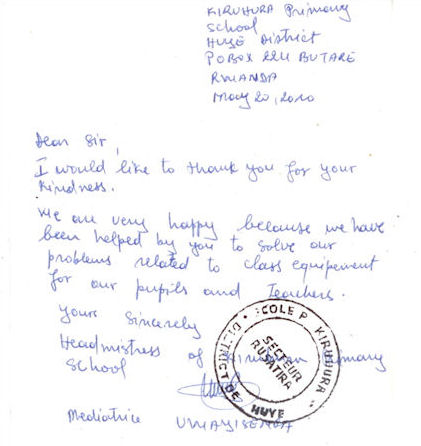 KIRUHURA Primary
School
HUYE District
PO BOX 224 BUTARE
RWANDA
May 20, 2010
Dear Sir,
I would like to thank you for your
kindness.
We are very happy because we have
been helped by you to solve our
problems related to class equipement
for our pupils and Teachers.
Yours Sincerely
Headmistress of Kiruhura Primary
School
ECOLE P. KIRUHURA
DISTRICT DE HUYE
SECTEUR
RUSATIRA
Mediatrice UWAYISENGA